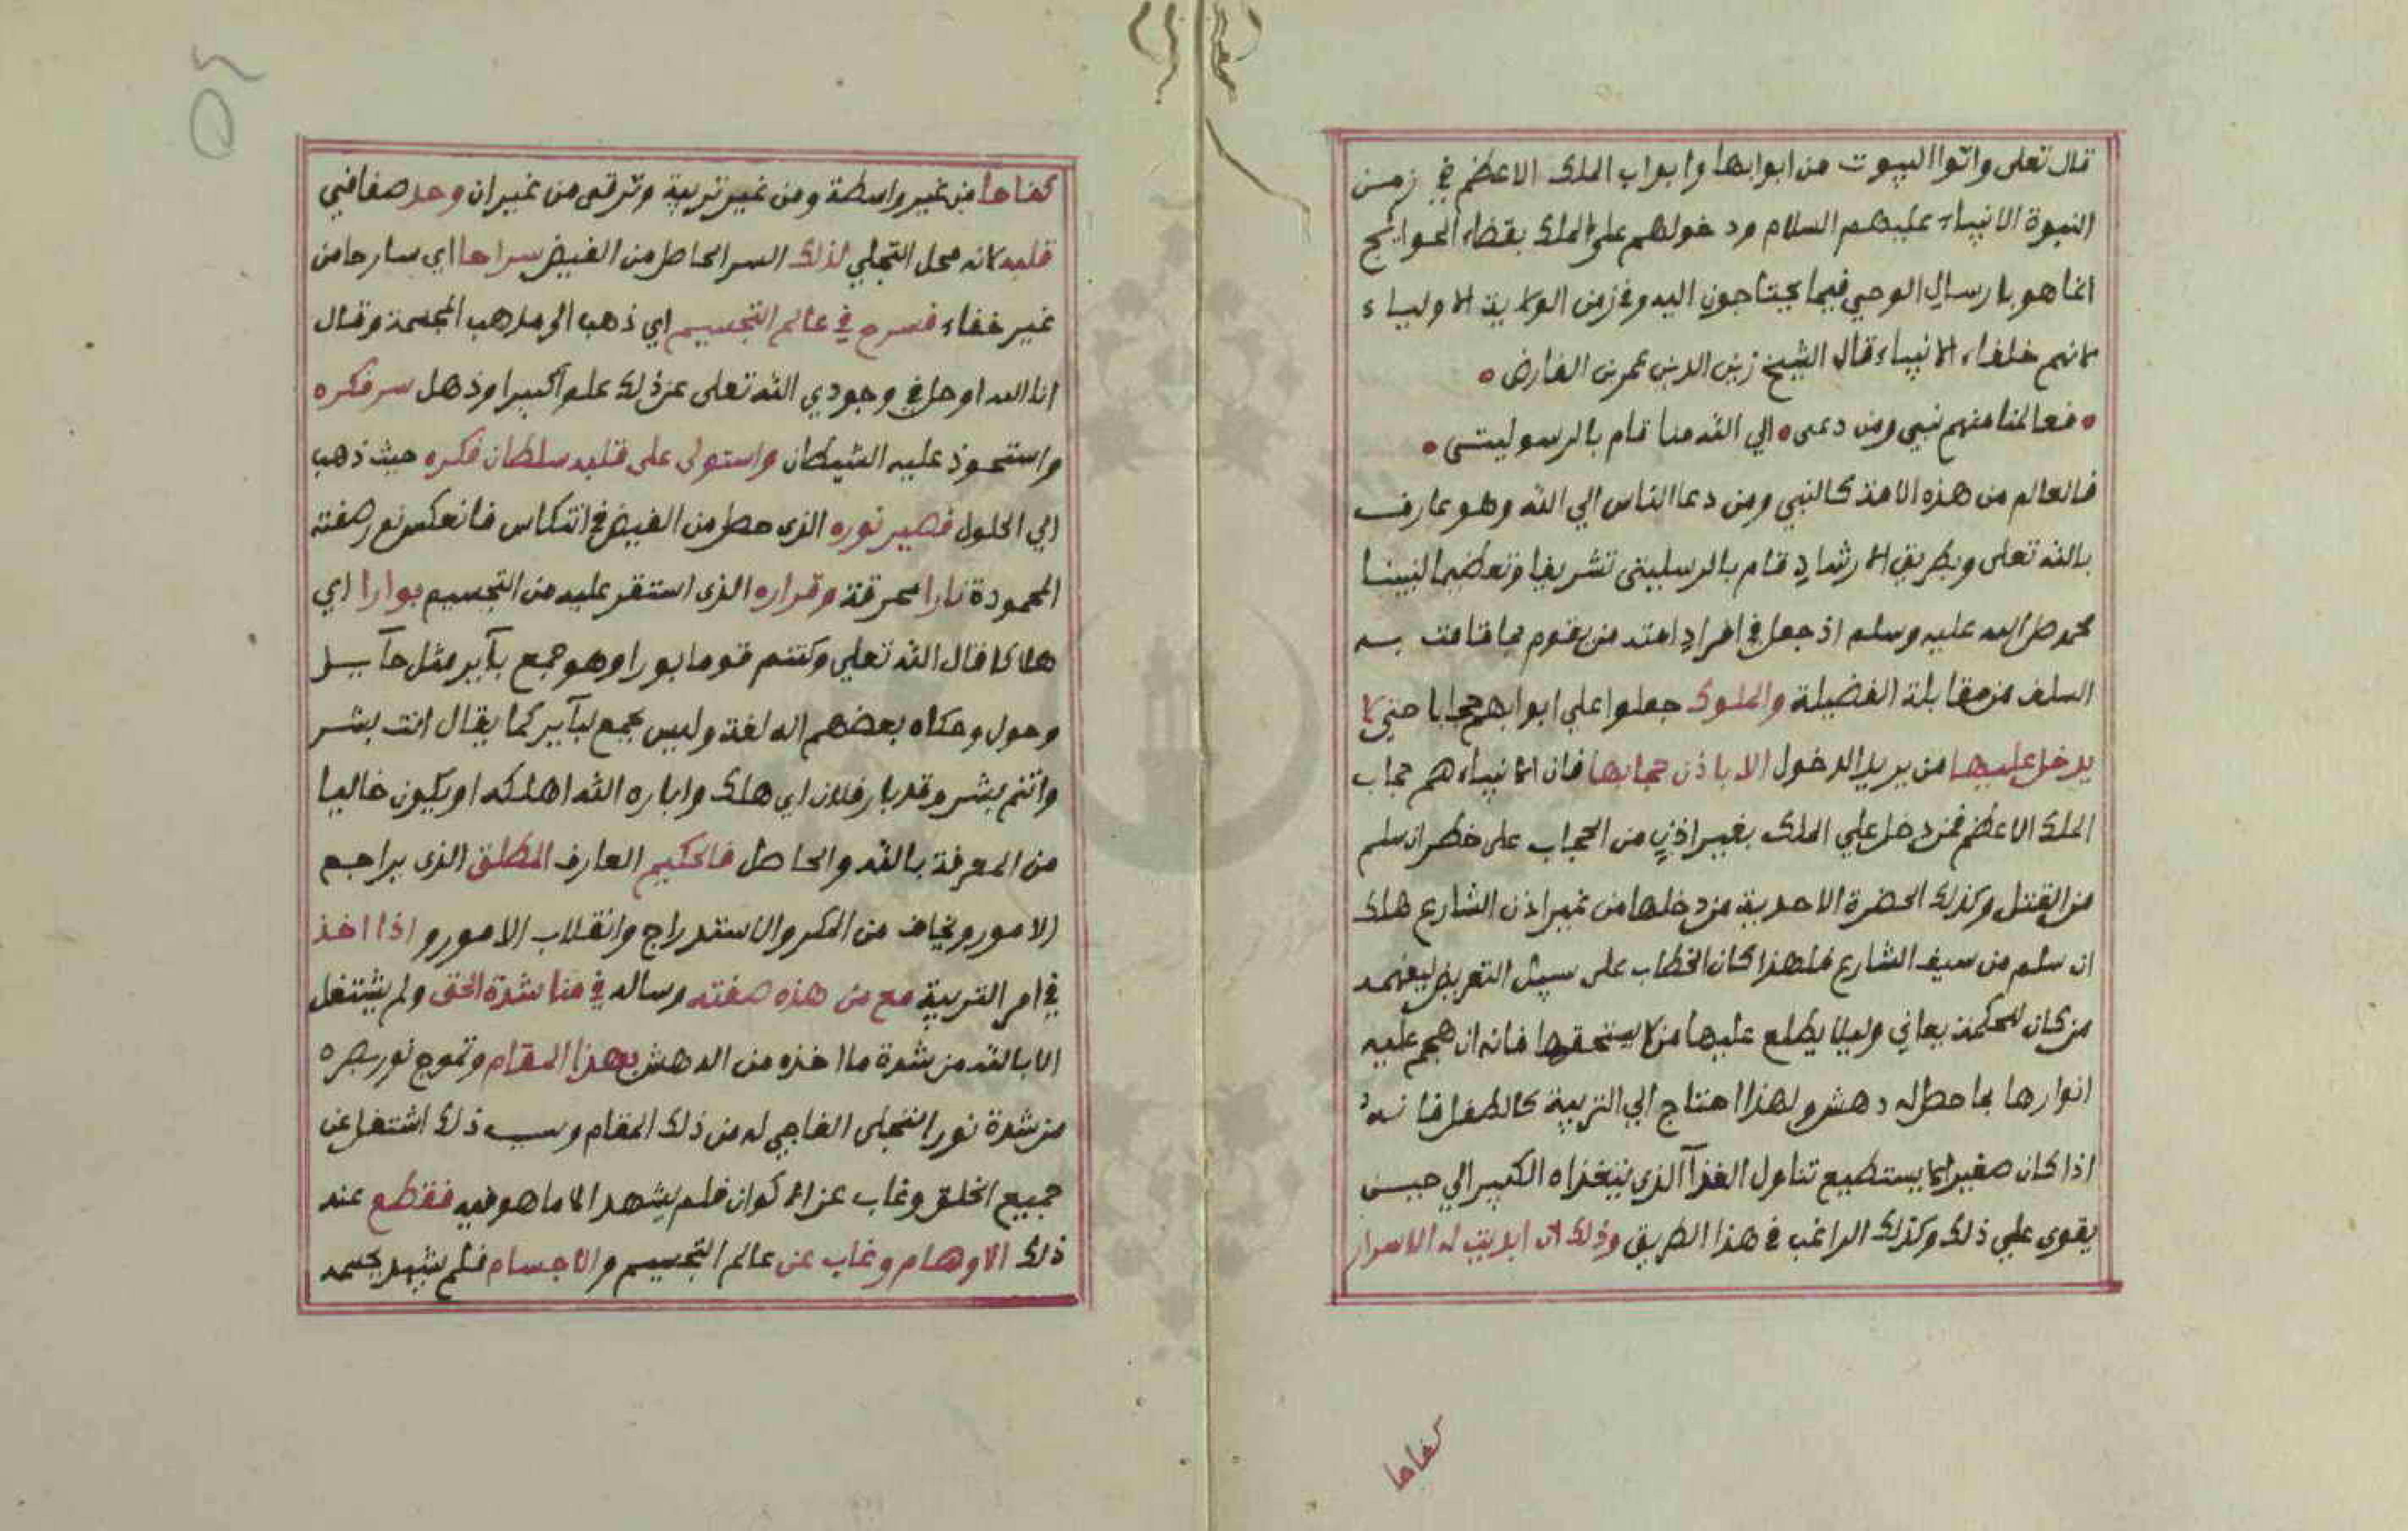 قال تعلى واتوا البيوت من ابوابها وابواب الملك الاعظم في زمن
النبوة الانبياء عليهم السلام ودخولهم على الملك بقضاء الحوايج
انما هو بارسال الوحي فيما يحتاجون اليه وفي زمن الولاية الاولياء
لانهم خلفاء الانبياء قال الشيخ زين الدين عمر بن الفارض
فعالمنا منهم نبي ومن دعى الي الله منا قام بالرسوليتي
فالعالم من هذه الامة كالنبي ومن دعا الناس الي الله وهو عارف
بالله تعلى وبطريق الارشاد قام بالرسليتى تشريفا وتعظيما لنبينا
محمد صلى الله عليه وسلم اذ جعل في افراد امته من يقوم بما قامت به
السلف من مقابلة الفضيلة والملوك جعلوا علي ابوابهم حجابا حتي لا
يدخل عليها من يريد الدخول الا باذن حجابها فان الانبياء هم حجاب
الملك الاعظم فمن دخل علي الملك بغير اذن من الحجاب على خطر ان سلم
من القتل وكذلك الحضرة الاحدية من دخلها من غير اذن الشارع هلك
ان سلم من سيف الشارع فلهذا كان الخطاب على سبيل التعريض ليفهمه
من كان للحكمة يعاني وليلا يطلع عليها من لا يستحقها فانه ان هجم عليه
انوارها بما حصل له دهش ولهذا احتاج الي التربية كالطفل فانه
اذا كان صغيرا لا يستطيع تناول الغذآ الذي يتغذاه الكبير الي حين
يقوى علي ذلك وكذلك الراغب في هذا الطريق وذلك ان ابديت له الاسرار
كفاحا
كفاحا من غير واسطة ومن غير تربية وترقى من غير ان وحد صفا في
قلبه لانه محل التجلي لذلك السر الحاصل من الفيض سراحا اي سارحا من
غير خفاء فسرح في عالم التجسيم اي ذهب الى مذهب المجسمة وقال
انا الله او حل في وجودي الله تعلى عن ذلك علوا كبيرا وذهل سر فكره
واستحوذ عليه الشيطان واستولى على قلبه سلطان فكره حيث ذهب
الي الحلول فصير نوره الذى حصل من الفيض في انتكاس فانعكس نور صفته
المحمودة نارا محرقة وقراره الذى استقر عليه من التجسيم بوارا اي
هلاكا قال الله تعلي وكنتم قوما بورا وهو جمع بآير مثل حآيل
وحول وحكاه بعضهم انه لغة وليس بجمع لبآير كما يقال انت بشر
وانتم بشر وقد بار فلان اي هلك واباره الله اهلكه او يكون خاليا
من المعرفة بالله والحاصل فالحكيم العارف المطلق الذى يراجع
الامور ويخاف من المكر والاستدراج وانقلاب الامور و اذا اخذ
في امر التربية مع من هذه صفته وساله في مناشدة الحق ولم يشتغل
الا بالله من شدة ما اخذه من الدهش بهذا المقام وتموج نور سره
من شدة نور التجلى الفاجي له من ذلك المقام وسبب ذلك اشتغل عن
جميع الخلق وغاب عن الاكوان فلم يشهد الا ما هو فيه فقطع عنه
ذلك الاوهام وغاب عن عالم التجسيم والاجسام فلم يشهد بجسمه